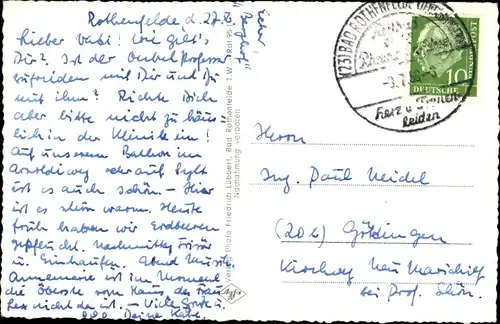 Rothenfelde d. 27.6.
Lieber Vati! Wie geht's
Dir? Ist der Onkel Professor
zufrieden mit Dir und Du
mit ihm? Richte Dich
aber bitte nicht zu häus-
lich in der Klinik ein!
Auf unserem Balkon im
ist es auch schön. — Hier
ist es schön warm. Heute
früh haben wir Erdbeeren
gepflückt. Nachmittag Frisör
u. Einkaufen. Abend Musik.
Annemarie ist im Moment
die Oberste vom Haus, da Frau
nicht da ist. — Viele Grüße u.
Deine Käte.
Photo Friedrich Lübbert, Bad Rothenfelde T.W.
Nachahmung verboten
(23) BAD ROTHENFELDE
Herz u.
leiden
10
DEUTSCHE
POST
Herrn
Ing. Paul Neidel
(20b) Göttingen
bei Prof. Schön.